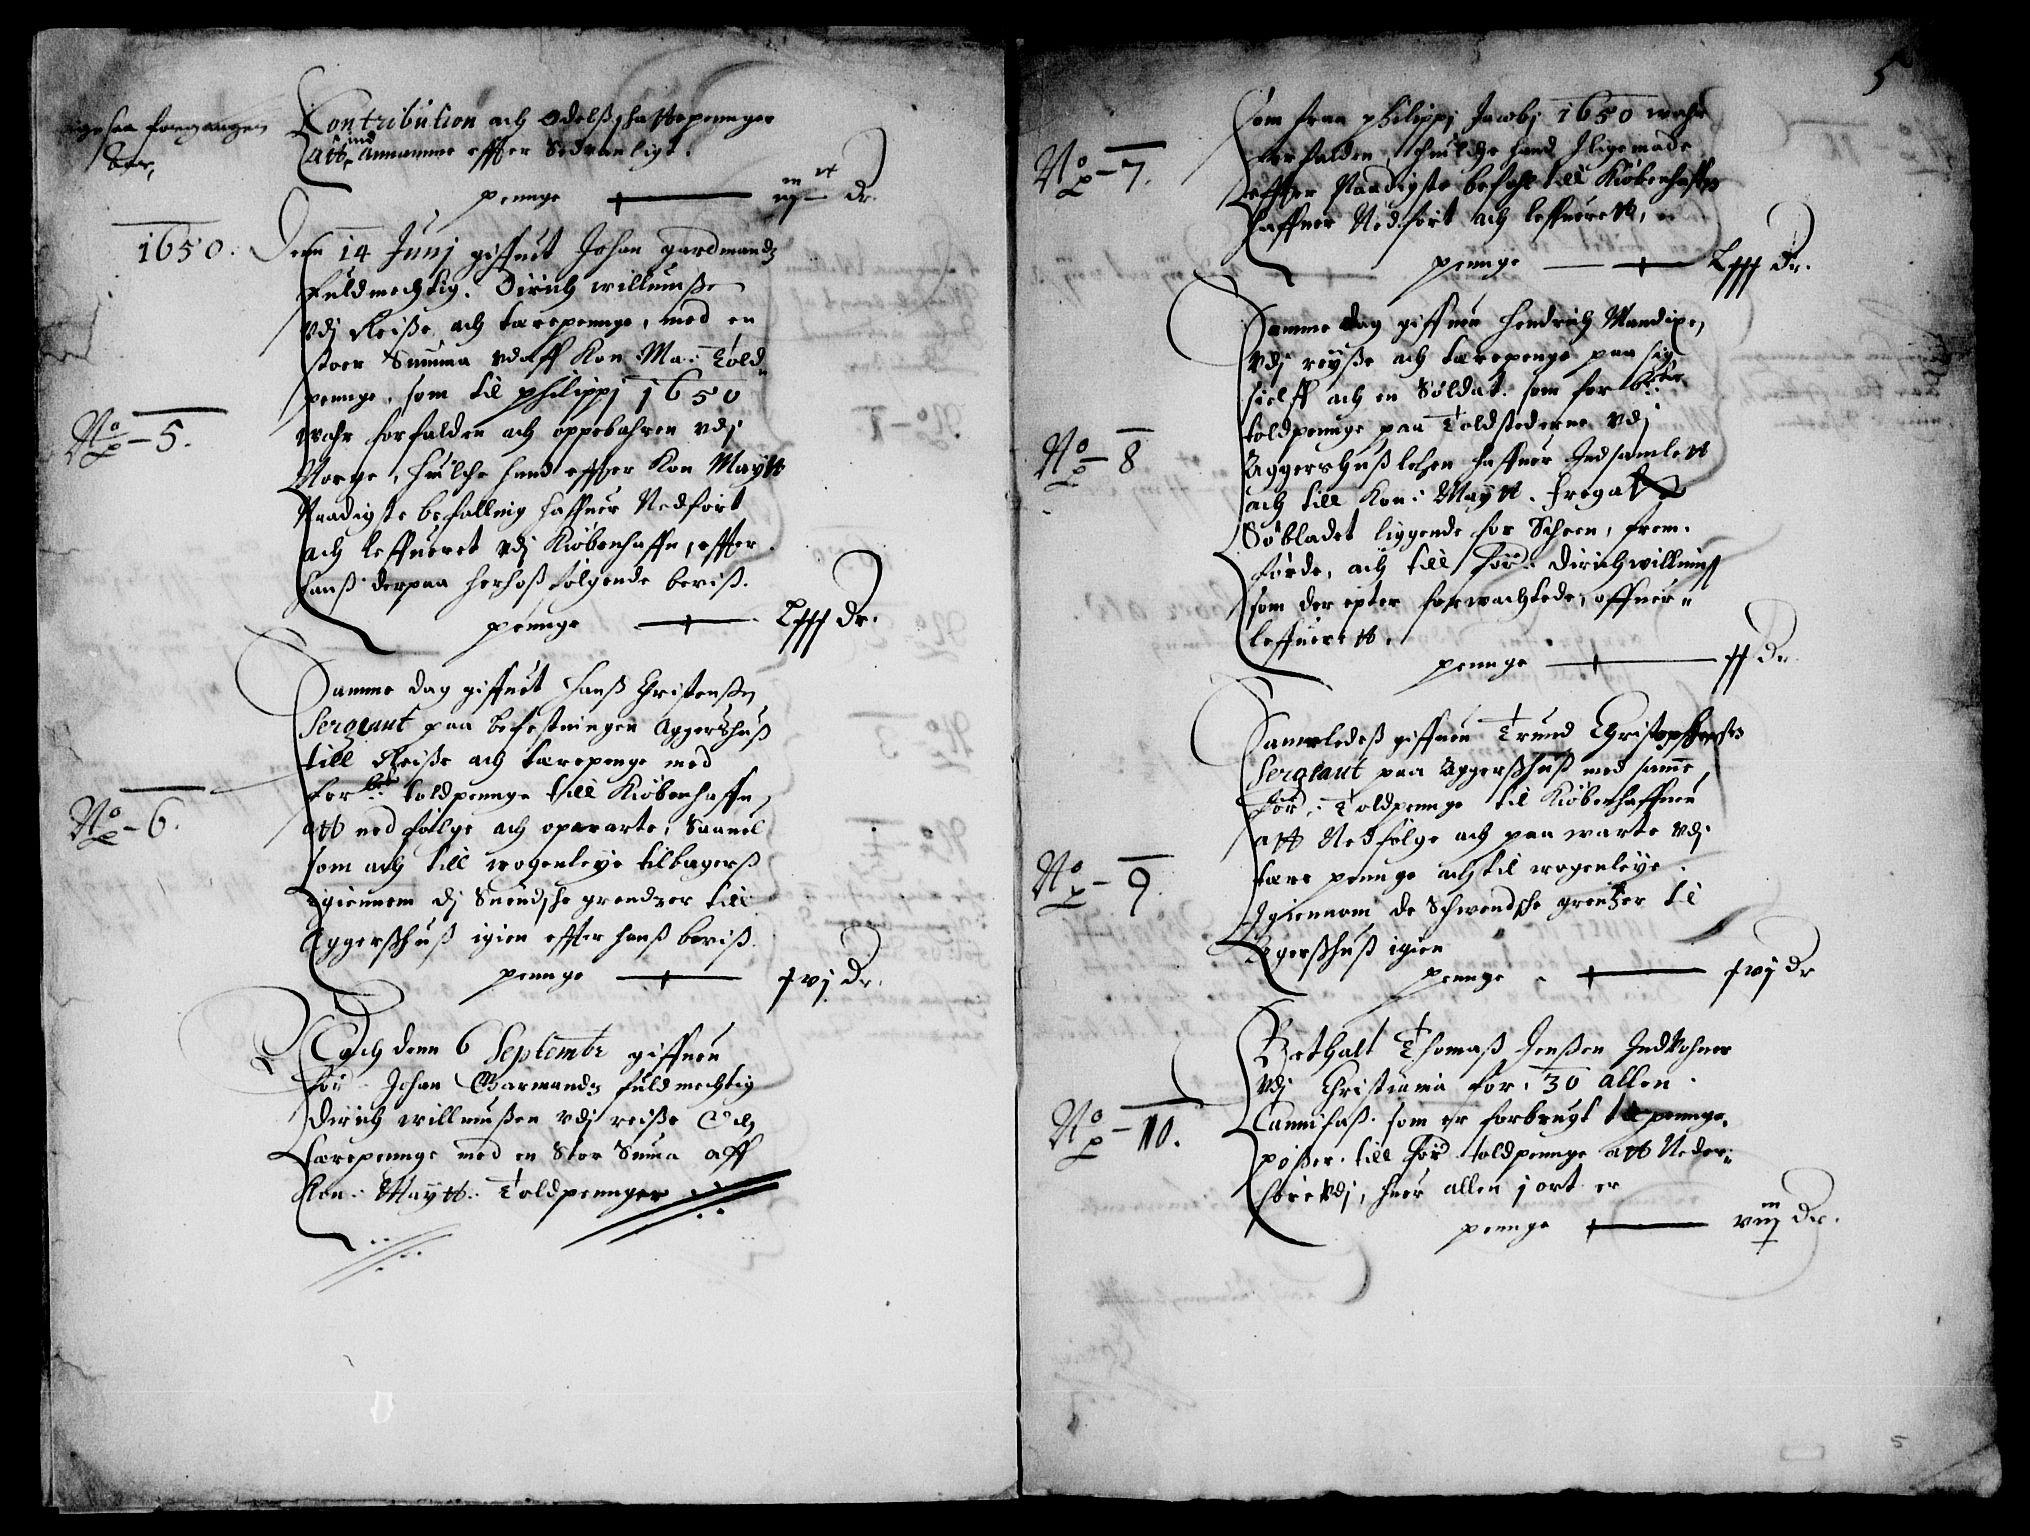 Contribution och Odelsschattepennger
att ind Annamme effter Sedvanligt.
pennge
ligesaa forrgangen
1650. Denn 14 Junj giffuit Johan gardmandz
fuldmechtig. Dirich willumsße
vdj Reiße och tærepennge, med en
stoer Summa vdaff Kon: Ma: Told
pennge, som til philippj 1650
No 5.
wahr forfalden och oppebahren vdj
Norge, huilche hand effter Kon Maytt
Naadigste befalling haffuer Nedfort
och leffueret vdj Kiøbenhaffn, effter
hanß derpaa herhoß følgende beviß.
pennge Lxxx Dr.
Samme dag giffuit Hanß Christenßen
Sergeant paa befestningen Aggershuß
till Reiße och tærepenge med
forbete toldpennge till Kiøbenhaffn,
No 6.
att nedfølge och opwarte, Saauel
som och till wogenleye tilbagerß
igiennem dj Suendsche grendzer till
Aggerßhuß igien effter hanß beviß.
pennge xvj Dr.
Noch denn 6 Septembr giffuen
for: Johan Garmandz fuldmechtig
Dirich willumßen vdj reiße Och
tærepennge med en Stor Suma aff
Kon: Maytt: Toldpennger
5
Som fraa philippj Jacobj 1650 wahr
No 7.
forfalden, huilche hand Jligemade
effter Naadigste befahl till Kiøbenhaffn
haffuer Nedfort och leffuerett,
pennge Lxxx Dr.
Samme dag giffuen Hendrich Mandixe,
vdj reyße och tærepenge paa sig
sielff och en Soldat. som forbete
toldpennge paa Toldstederne vdj
No 8
Aggershußlehen haffuer Indsamlett
och till Kon: Maytt. fregatt
Søbladet liggende for Scheen, frem.
førde, och till for: Dirich willumß
som der epter forwachtede, offuer
leffuerett.
pennge xx Dr.
Sameledeß giffuen Trund Christophersen
Sergeant paa Aggerßhuß med same
for: Toldpennge til Kiøbenhaffuen
att Nedfølge och paa warte vdj
No 9.
tære pennge och til wogenleye
Igiennom de Schwendsche grentzer til
Agerßhuß igien
pennge xvj Dr
Bethalt Thomaß Jenßen Indvohner
vdj Christiania for. 30 allen
No 10.
Cannifaß. som er forbrugt til pennge
poßer. till for: toldpennge att Neder
føre vdj, huer allen j ort er
pennge viij Dr.
5